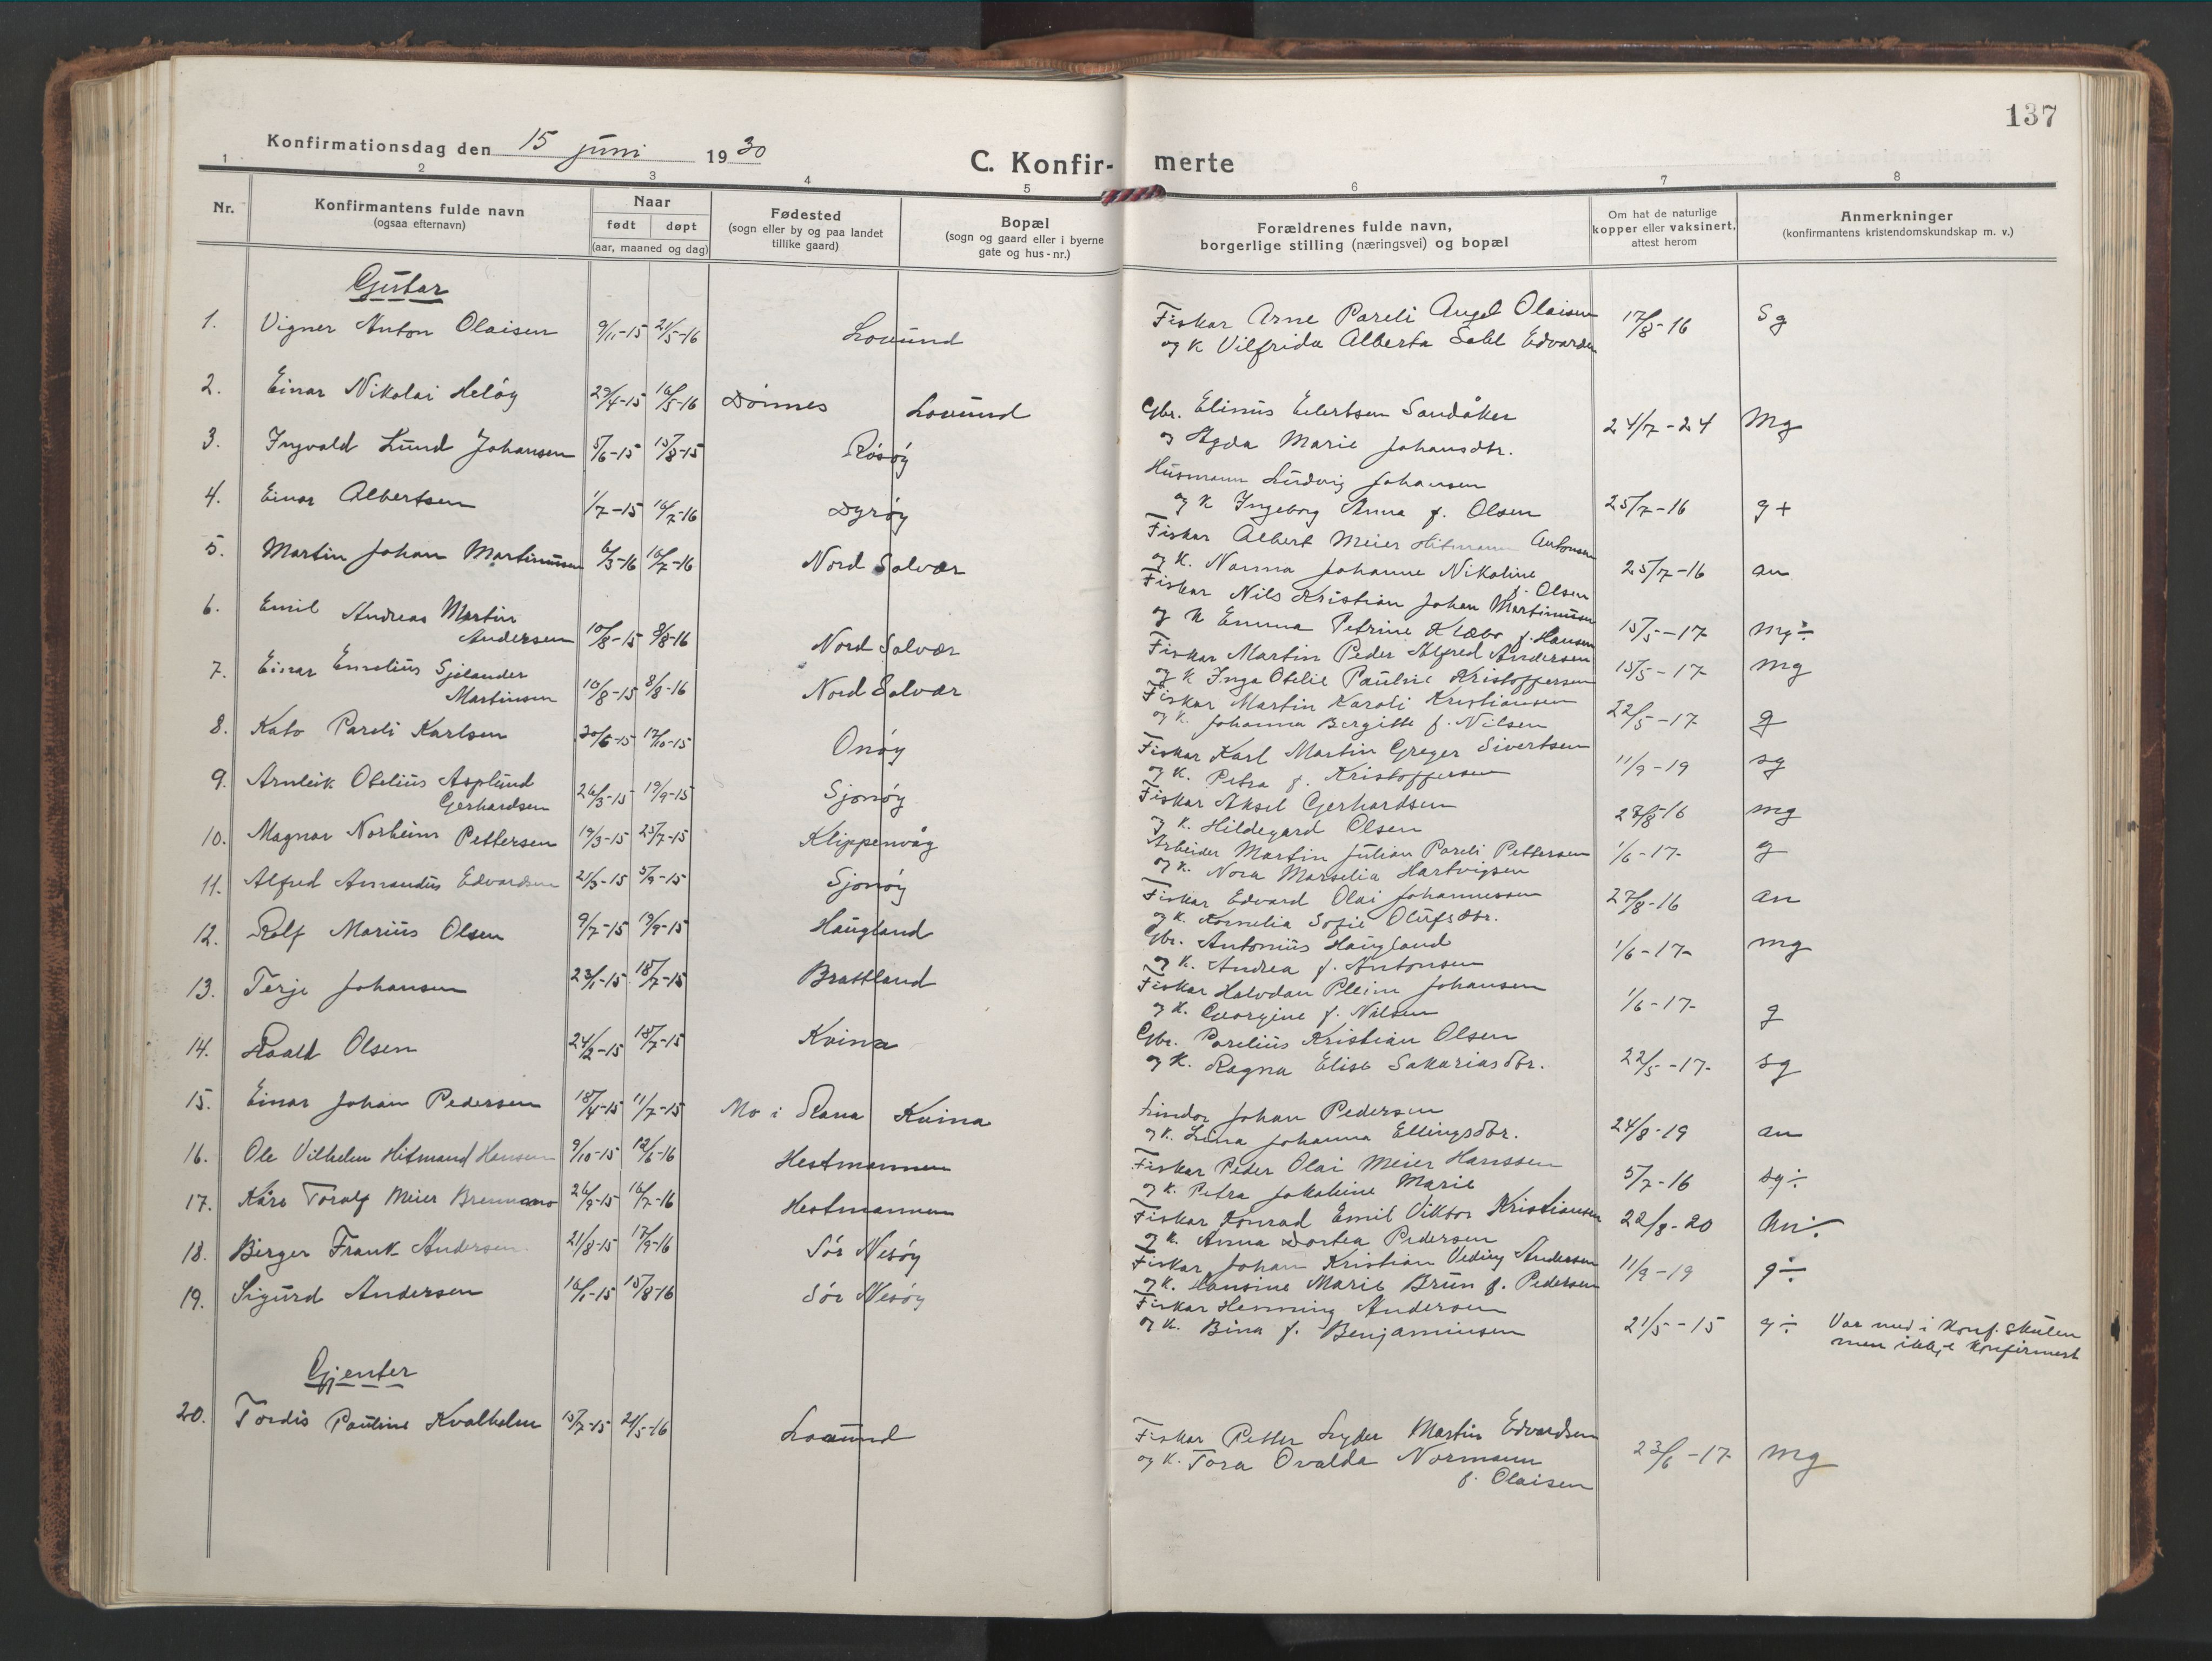 137
Konfirmationsdag den 15 juni 1930
C. Konfirmerte
1 2 3 4 5 6 7 8
Nr.
Konfirmantens fulde navn
(ogsaa efternavn)
Naar
født døpt
(aar, maaned og dag)
Fødested
(sogn eller by og paa landet
tillike gaard)
Bopæl
(sogn og gaard eller i byerne
gate og hus-nr.)
Forældrenes fulde navn,
borgerlige stilling (næringsvei) og bopæl
Om hat de naturlige
kopper eller vaksinert,
attest herom
Anmerkninger
(konfirmantens kristendomskundskap m. v.)
Gutar
1. Vigner Anton Olaisen 9/11-15 21/5-16 Lovund
Fiskar Arne Pareli Angel Olaisen 17/8-16 Sg
og K Vilfrida Alberta Edvardsen
2. Einar Nikolai Heløy 29/4-15 16/5-16 Dønnes Lovund
Gbr. Elinus Eilertsen Sandåker 24/7-24 Mg
og Agda Marie Johansdtr.
3. Ingvald Lund Johansen 5/6-15 15/8-15 Røsøy
Husmann Ludvig Johansen
og K Ingeborg Anna f. Olsen 25/7-16 g+
4. Einar Albertsen 1/7-15 16/7-16 Dyrøy
Fiskar Albert Meier Hitmann Antonsen
og K. Nanna Johanne Nikoline 25/7-16 an
f. Olsen
5. Martin Johan Martinussen 6/3-16 16/7-16 Nord Solvær
Fiskar Nils Kristian Johan Martinussen
og K Emma Petrine Klæbo f. Hansen 15/5-17 mg÷
6. Emil Andreas Martin
Andersen 10/8-15 8/8-16 Nord Solvær
Fiskar Martin Peder Alfred Andersen 15/5-17 mg
og K Inga Otelie Pauline Kristoffersen
7. Einar Emelius Sjølander
Martinsen 10/8-15 8/8-16 Nord Solvær
Fiskar Martin Karoli Kristiansen 22/5-17 g
og K. Johanna Bergitte f. Nilsen
8. Kato Pareli Karlsen 20/6-15 17/10-15 Onøy
Fiskar Karl Martin Greger Sivertsen
og K. Petra f. Kristoffersen 11/9-19 sg
9. Arnleik Otelius Asplund
Gerhardsen 26/3-15 19/9-15 Sjonøy
Fiskar Aksel Gerhardsen
og K. Hildegard Olsen 27/8-16 mg
10. Magnar Norheim Pettersen 19/3-15 25/7-15 Klippenvåg
Arbeider Martin Julian Pareli Pettersen 1/6-17- g
og K. Nora Marselia Hartvigsen
11. Alfred Amandus Edvardsen 21/3-15 5/9-15 Sjonøy
Fiskar Edvard Olai Johannessen 27/8-16 an
og K. Kornelia Sofie Olufsdtr.
12. Rolf Marius Olsen 9/7-15 19/9-15 Haugland
Gbr. Antonius Haugland 1/6-17- mg
og K. Andrea f. Antonsen
13. Terje Johansen 23/1-15 18/7-15 Brattland
Fiskar Halvdan Pleim Johansen 1/6-17- g
og K. Georgine f. Nilsen
14. Roald Olsen 24/2-15 18/7-15 Kvina
Gbr. Parelius Kristian Olsen
og K. Ragna Elise Sakariasdtr. 22/5-17- sg
15. Einar Johan Pedersen 18/4-15 11/7-15 Mo i Rana Kvina
Sindor Johan Pedersen
og K. Lina Johanna Ellingsdtr. 24/8-19 an
16. Ole Vilhelm Hitmand Hansen 9/10-15 12/6-16 Hestmannen
Fiskar Peder Olai Meier Hanssen
og K. Petra Jakobine Marie 5/7-16 sg÷
17. Kåre Toralf Meier Brennmo 26/9-15 16/7-16 Hestmannen
Fiskar Konrad Emil Viktor Kristiansen 22/8-20 An÷
og K. Anna Dortea Pedersen
18. Birger Frank Andersen 21/8-15 17/9-16 Sør Nesøy
Fiskar Johan Kristian Veding Andersen 11/9-19 g÷
og K. Hansine Marie Brun f. Pedersen
19. Sigurd Andersen 16/1-15 15/8-16 Sør Nesøy
Fiskar Henning Andersen
og K. Bina f. Benjaminsen 21/5-15 g÷ Var med i Konf. skulen
men ikkje Konfirmert
Gjenter
20. Tordis Pauline Kvalholm 15/7-15 21/5-16 Lovund
Fiskar Petter Lyder Martin Edvardsen
og K. Tora Ovalda Normann 23/6-17 mg
f. Olaisen